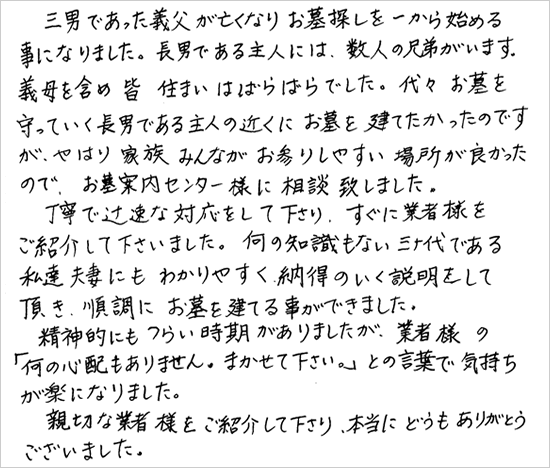 三男であった義父が亡くなりお墓探しを一から始める
事になりました。長男である主人には、数人の兄弟がいます。
義母を含め皆住まいはばらばらでした。代々お墓を
守っていく長男である主人の近くにお墓を建てたかったのです
が、やはり家族みんながお参りしやすい場所が良かった
ので、お墓案内センター様に相談致しました。
丁寧で迅速な対応をして下さり、すぐに業者様を
ご紹介して下さいました。何の知識もない三十代である
私達夫妻にもわかりやすく、納得のいく説明をして
頂き、順調にお墓を建てる事ができました。
精神的にもつらい時期がありましたが、業者様の
「何の心配もありません。まかせて下さい。」との言葉で気持ち
が楽になりました。
親切な業者様をご紹介して下さり、本当にどうもありがとう
ございました。